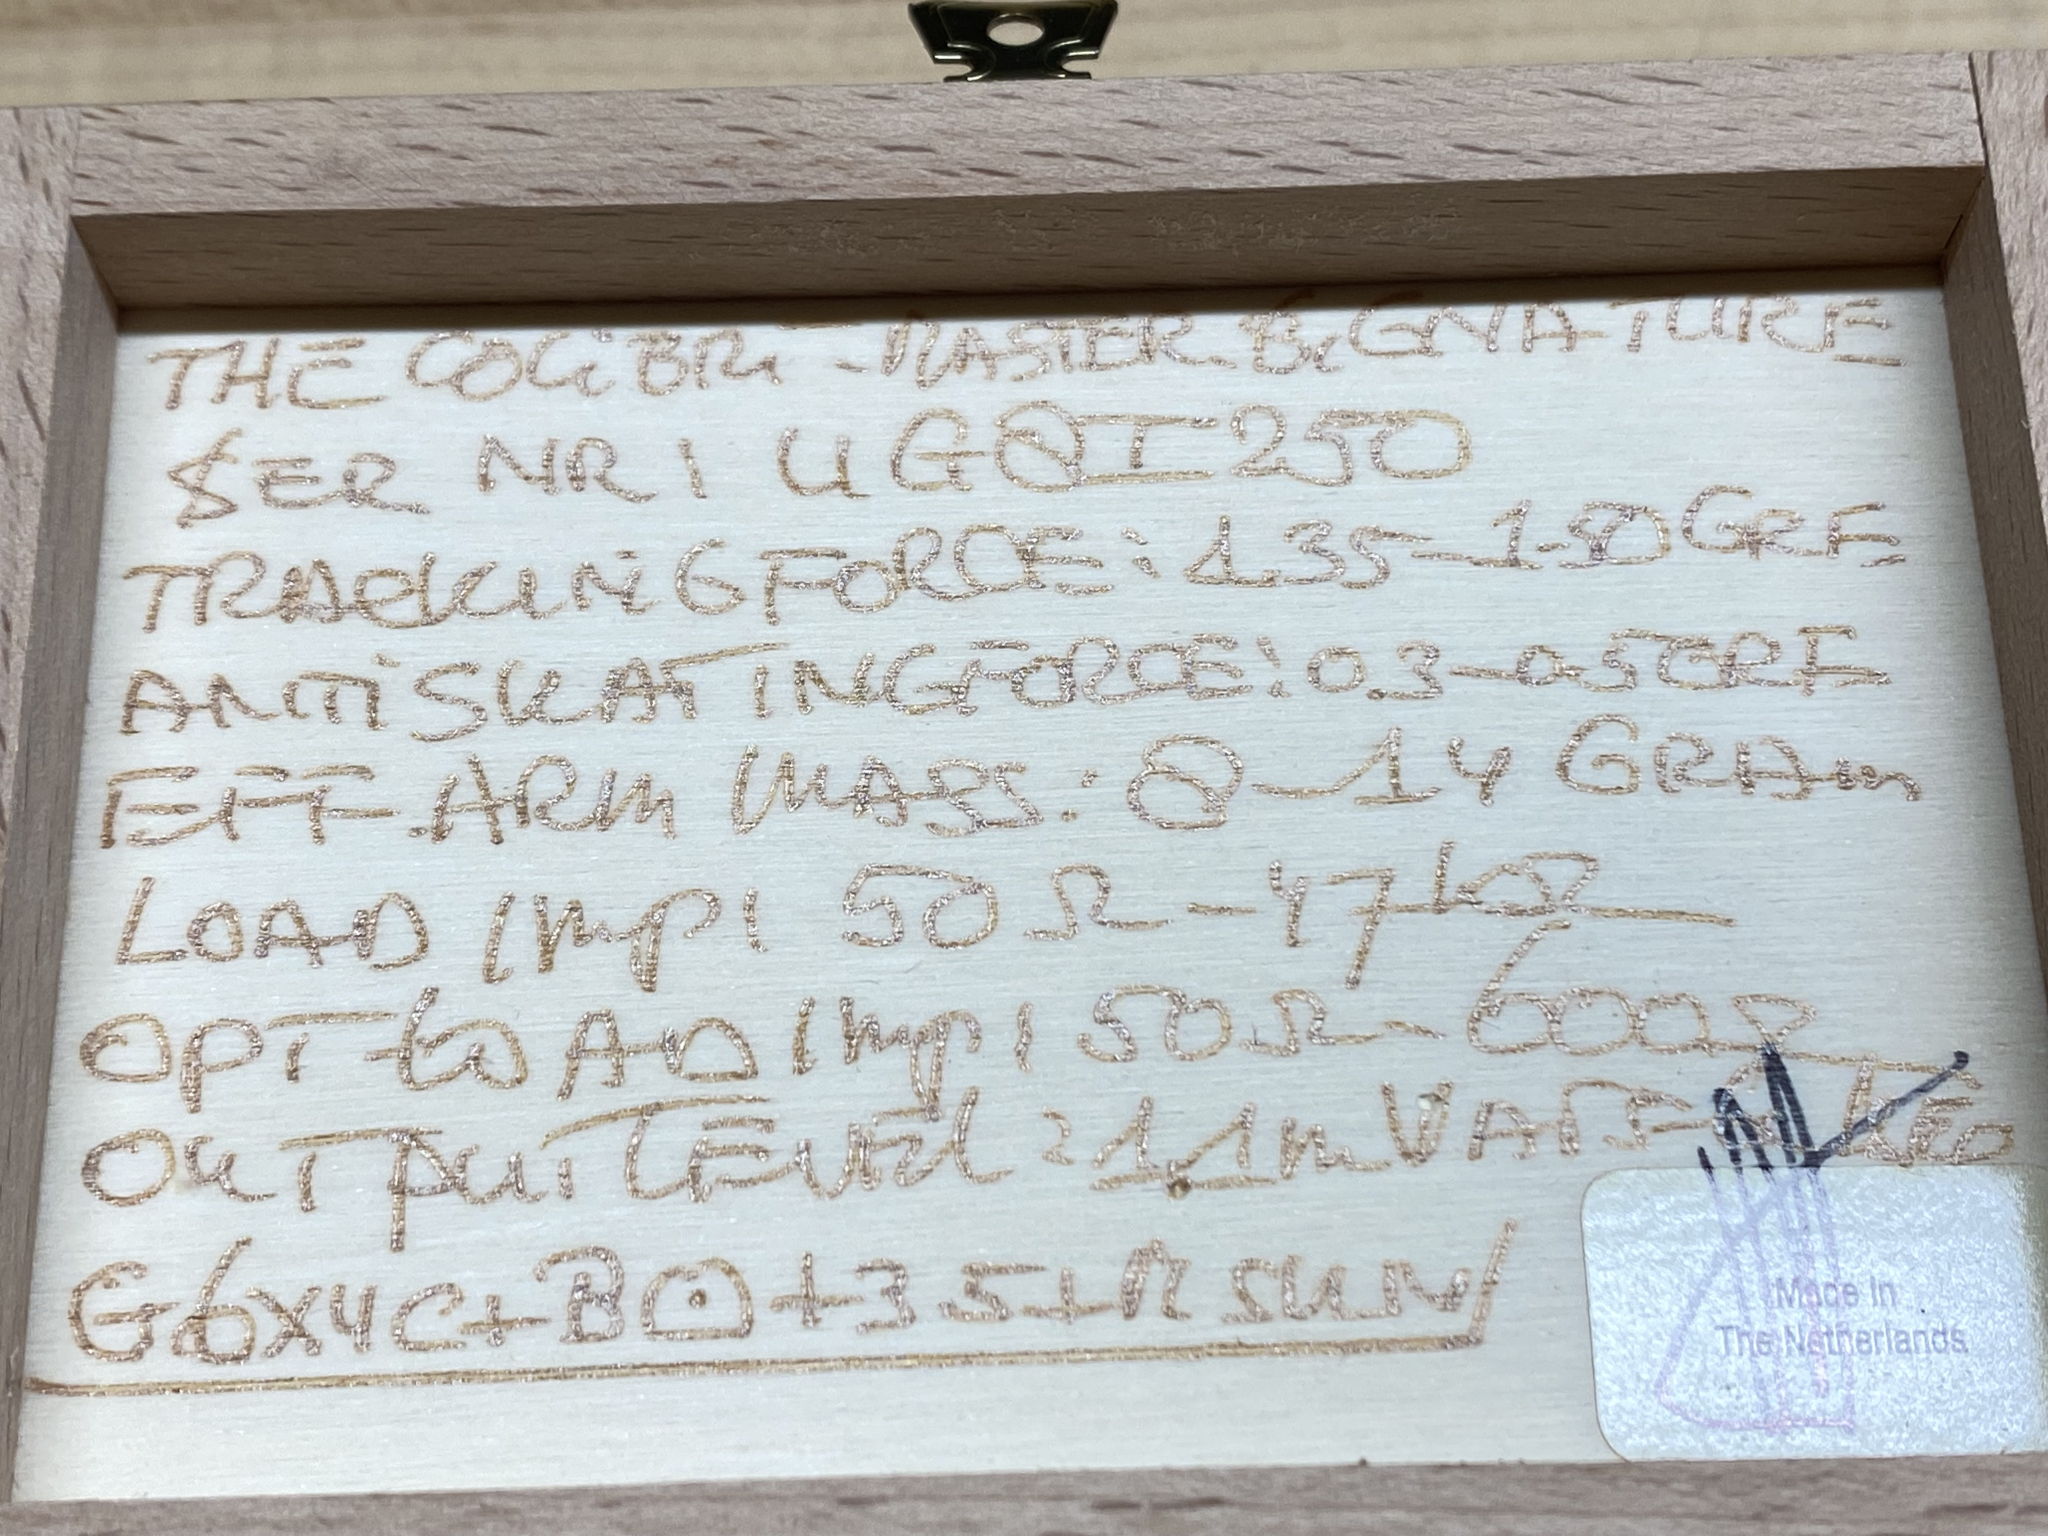 THE COLIBRI - MASTER SIGNATURE
SER NR 1 UGQI250
TRACKING FORCE: 1.35 - 1.50 GRF
ANTISKATING FORCE: 0.3 - 0.5 GRF
EFF. ARM MASS: 8 - 14 GRAM
LOAD IMP: 50Ω - 47kΩ
OPT LOAD IMP: 50Ω - 600Ω
OUTPUT LEVEL: 1.1mV
G6x4C+B +35+ SUN
Made In
The Netherlands